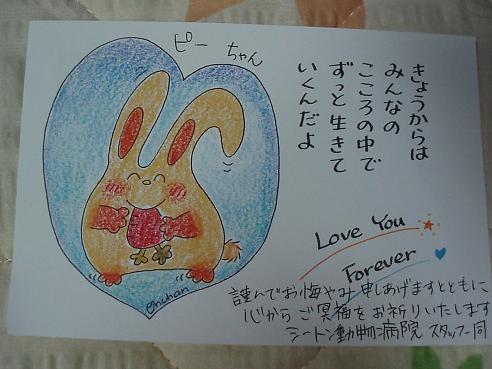 ピーちゃん
きょうからは
みんなの
こころの中で
ずっと生きて
いくんだよ
Love You
Forever
謹んでお悔やみ申しあげますとともに
心からご冥福をお祈りいたします
シートン動物病院 スタッフ一同